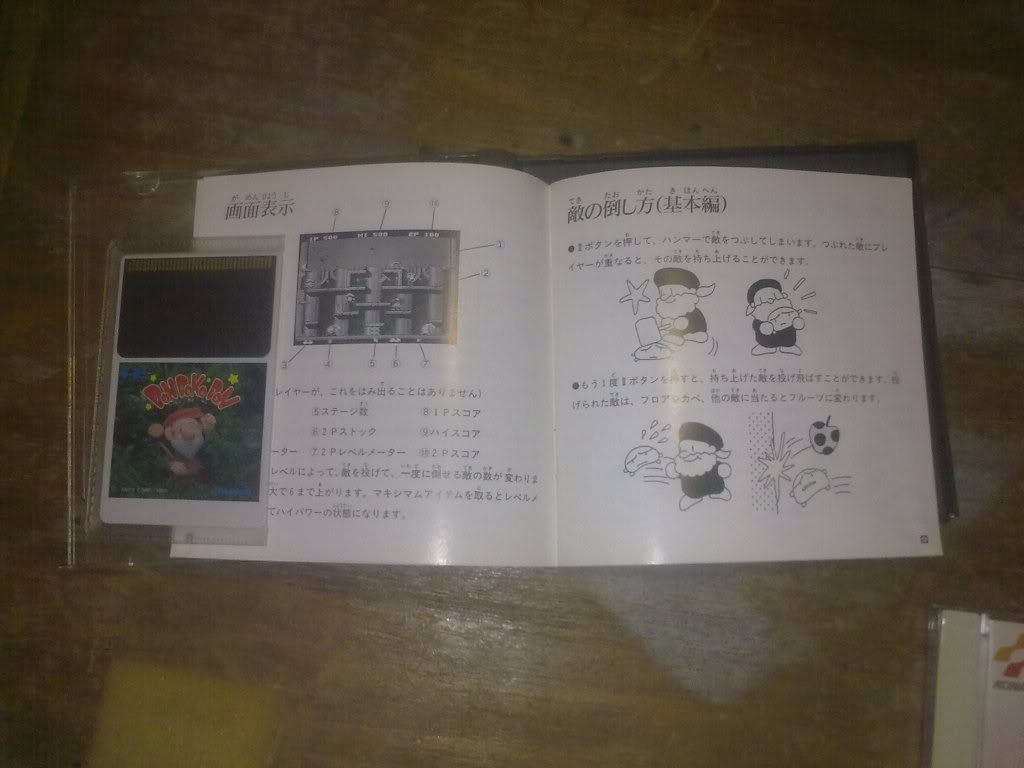 画面表示
⑧ ⑨ ⑩
1P 500 HI 500 2P 100
①
②
③ ④ ⑤ ⑥ ⑦
レイヤーが、これをはみ出ることはありません)
⑤ステージ数 ⑧1Pスコア
⑥2Pストック ⑨ハイスコア
ーター ⑦2Pレベルメーター ⑩2Pスコア
レベルによって、敵を投げて、一度に倒せる敵の数が変わりま
大で6まで上がります。マキシマムアイテムを取るとレベルメ
てハイパワーの状態になります。
敵の倒し方(基本編)
●Ⅱボタンを押して、ハンマーで敵をつぶしてしまいます。つぶれた敵にプレ
イヤーが重なると、その敵を持ち上げることができます。
●もう1度Ⅱボタンを押すと、持ち上げた敵を投げ飛ばすことができます。投
げられた敵は、フロアやカベ、他の敵に当たるとフルーツに変わります。
KONAMI